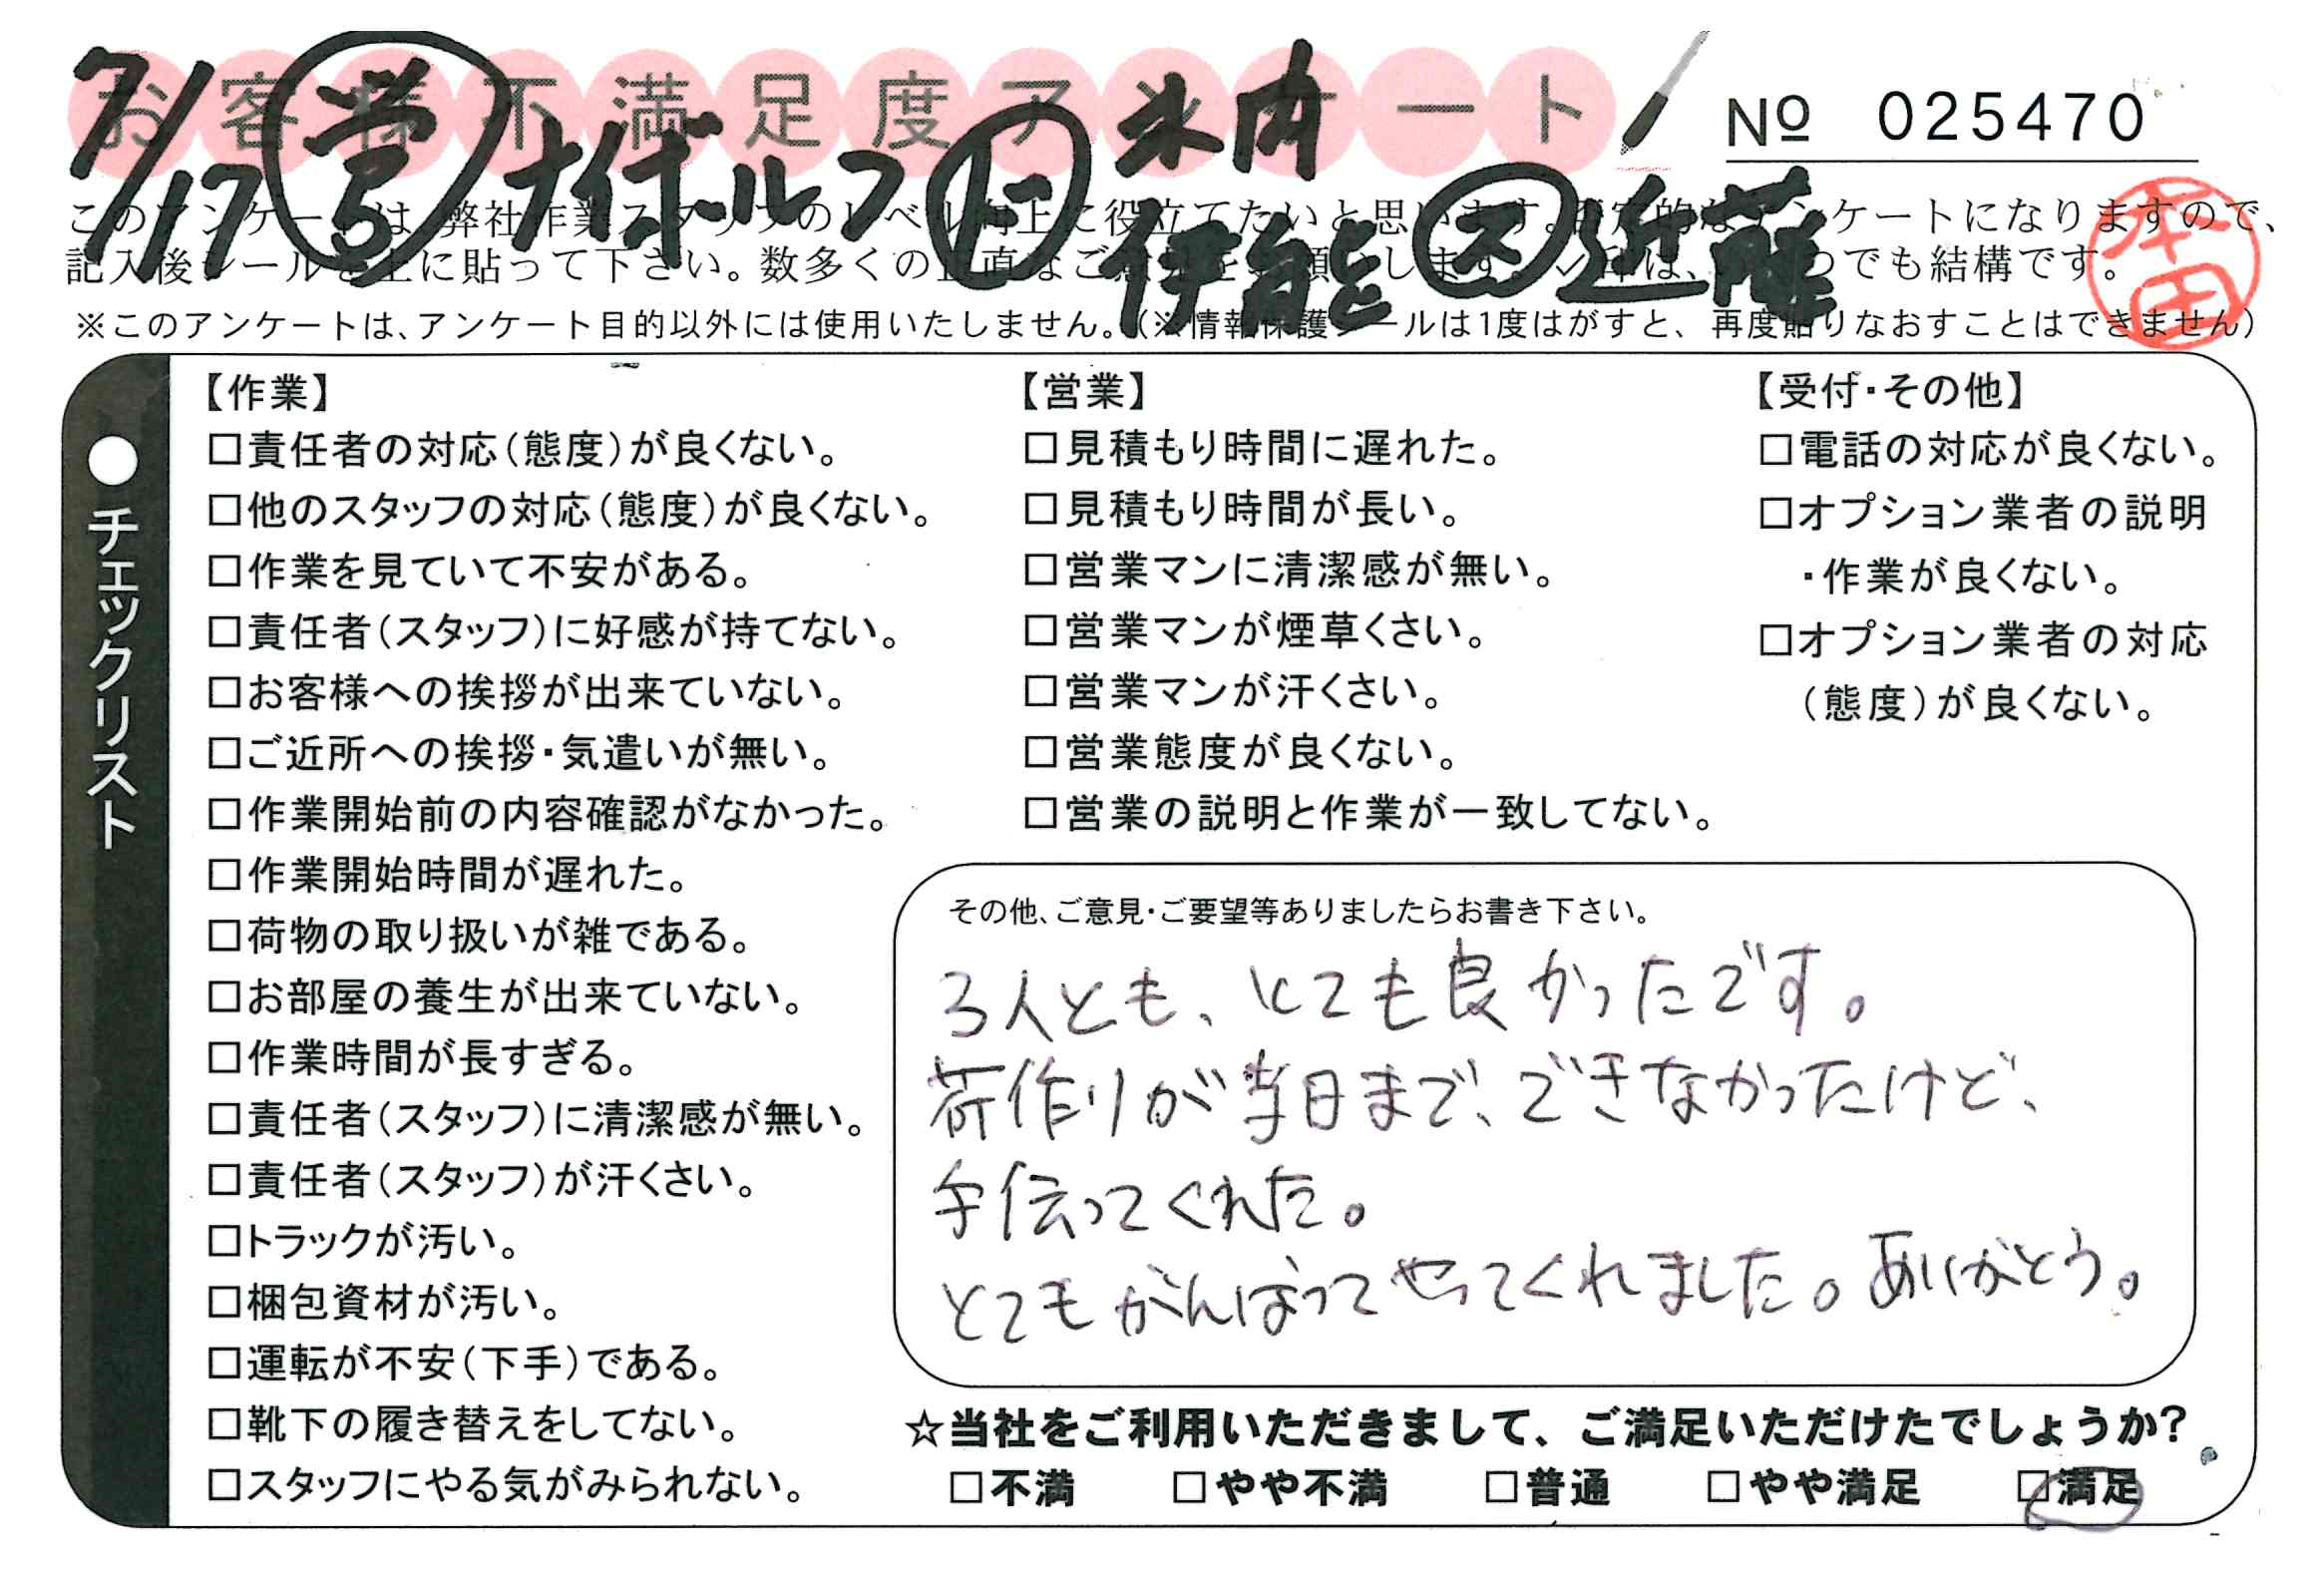 お客様不満足度アンケート
№ 025470
7/17 営 ナイボールフ リ 木内
伊能 ス 近藤
本田
このアンケートは、弊社作業スタッフのレベル向上に役立てたいと思います。否定的なアンケートになりますので、
記入後シールを上に貼って下さい。数多くの正直なご意見をお願いします。✓印は、いくつでも結構です。
※このアンケートは、アンケート目的以外には使用いたしません。(※情報保護シールは1度はがすと、再度貼りなおすことはできません)
●チェックリスト
【作業】
□責任者の対応(態度)が良くない。
□他のスタッフの対応(態度)が良くない。
□作業を見ていて不安がある。
□責任者(スタッフ)に好感が持てない。
□お客様への挨拶が出来ていない。
□ご近所への挨拶・気遣いが無い。
□作業開始前の内容確認がなかった。
□作業開始時間が遅れた。
□荷物の取り扱いが雑である。
□お部屋の養生が出来ていない。
□作業時間が長すぎる。
□責任者(スタッフ)に清潔感が無い。
□責任者(スタッフ)が汗くさい。
□トラックが汚い。
□梱包資材が汚い。
□運転が不安(下手)である。
□靴下の履き替えをしてない。
□スタッフにやる気がみられない。
【営業】
□見積もり時間に遅れた。
□見積もり時間が長い。
□営業マンに清潔感が無い。
□営業マンが煙草くさい。
□営業マンが汗くさい。
□営業態度が良くない。
□営業の説明と作業が一致してない。
【受付・その他】
□電話の対応が良くない。
□オプション業者の説明
・作業が良くない。
□オプション業者の対応
(態度)が良くない。
その他、ご意見・ご要望等ありましたらお書き下さい。
3人とも、とても良かったです。
荷作りが当日まで、できなかったけど、
手伝ってくれた。
とてもがんばってやってくれました。ありがとう。
☆当社をご利用いただきまして、ご満足いただけたでしょうか?
□不満 □やや不満 □普通 □やや満足 □満足